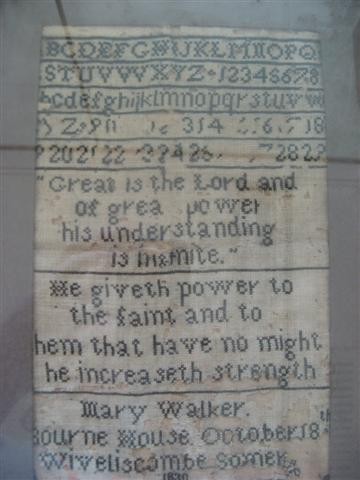 BCDEFGHIJKLMNOPQ
STUVWXYZ 12345678
bcdefghijklmnopqrstuvw
314 18
20 21 22 28
"Great is the Lord and
of grea power
his understanding
is infinite."
He giveth power to
the faint and to
hem that have no might
he increaseth strength
Mary Walker.
Bourne House. October 18th
Wiveliscombe Somer
1830